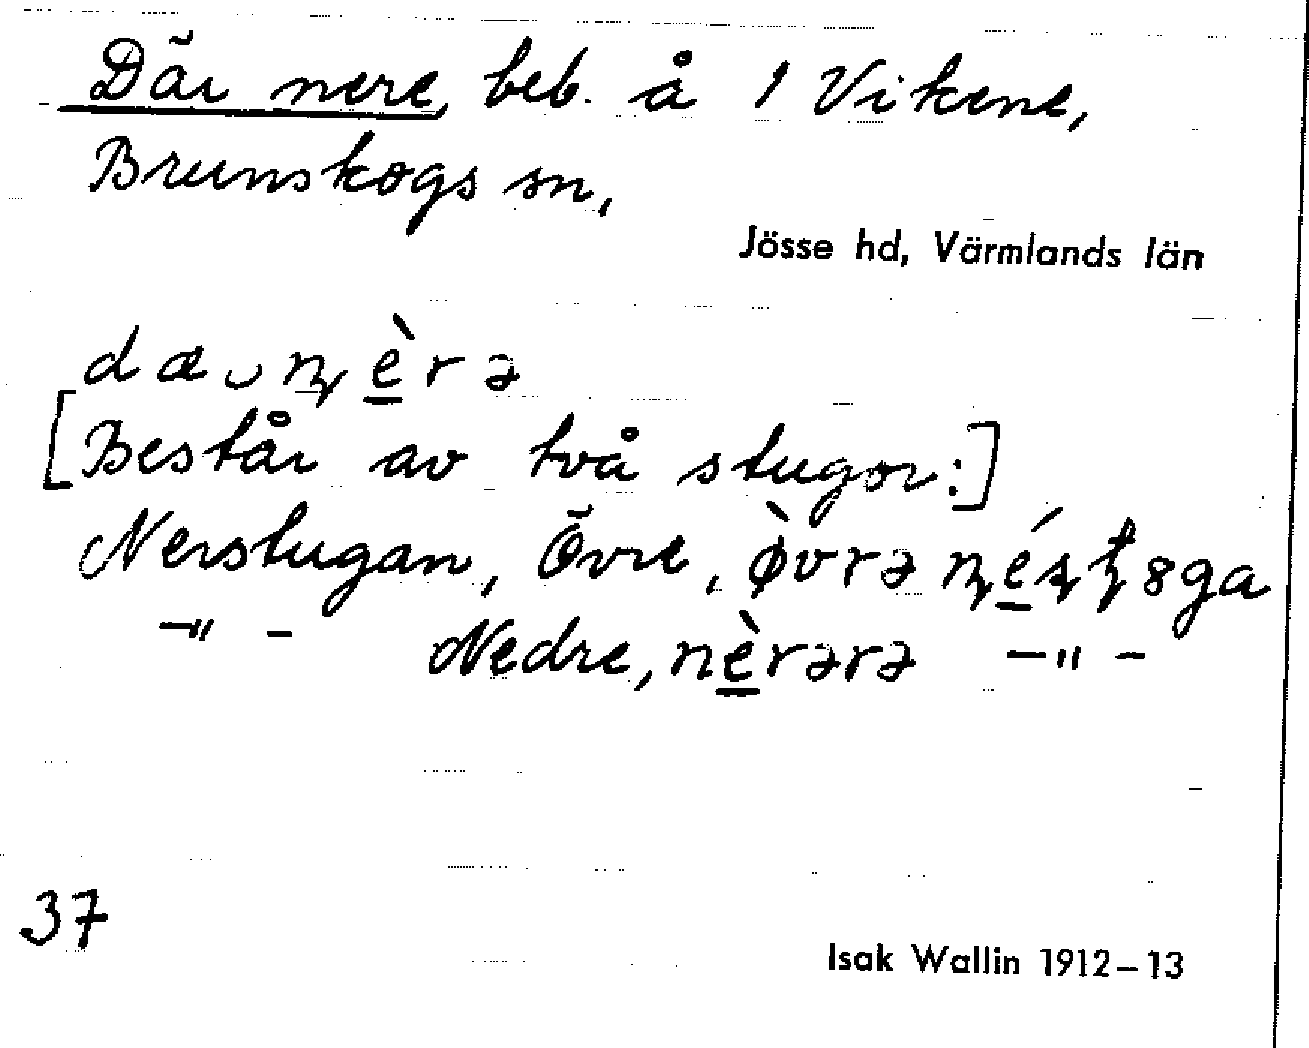 Där nere, beb. å 1 Vikene,
Brunskogs sn,
Jösse hd, Värmlands län
dæ‿ɳèrə
[Består av två stugor:]
Nerstugan, Övre, ø̀vrə ɳéʂʈ8ga
—"— Nedre, nèrərə —"—
37
Isak Wallin 1912–13